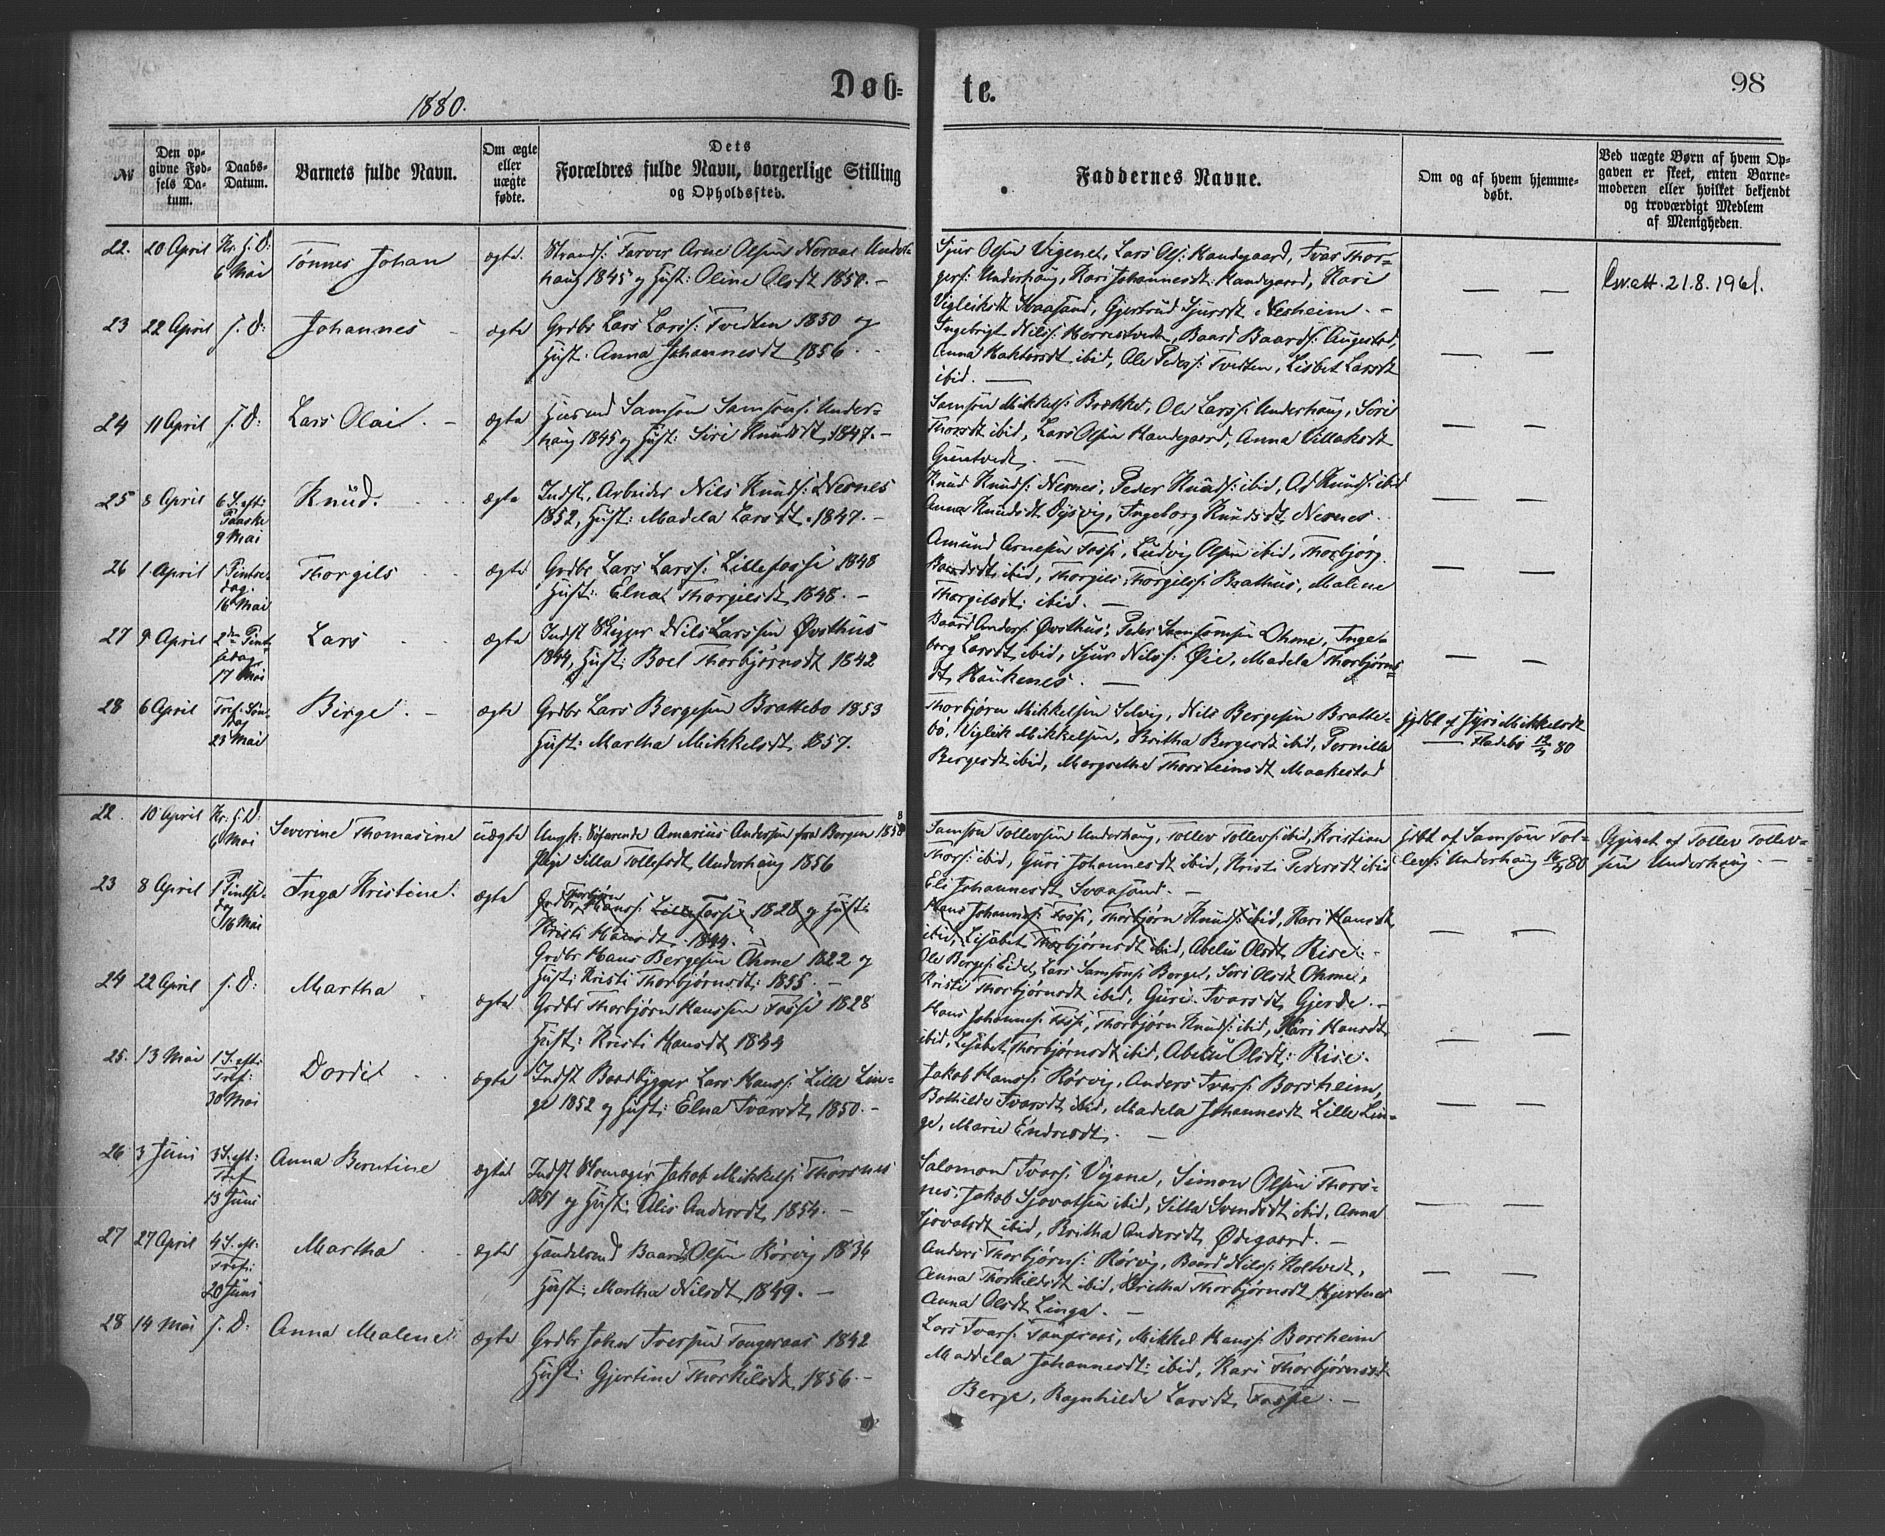 Døb=
te.
98
1880.
№
Den op-
givne Fød-
sels Da-
tum.
Daabs-
Datum.
Barnets fulde Navn.
Om ægte
eller
uægte
fødte.
Dets
Forældres fulde Navn, borgerlige Stilling
og Opholdssted.
Faddernes Navne.
Om og af hvem hjemme-
døbt.
Ved uægte Børn af hvem Op-
gaven er skeet, enten Barne-
moderen eller hvilket bekjendt
og troværdigt Medlem
af Menigheden.
22. 20 April Kr. H. D: 6 Mai
Tonnes Johan
ægte
Strands: Farver Arne Olsen Neraas Under-
haug 1845 og Hust: Oline Olsdt 1850. –
Sjur Olsen Vigenes, Lars Ols: Handegaard, Ivar Thor-
gers: Underhaug, Kari Johannesdt: Handegaard, Kari
Vigleiksdt Svaasand, Gjertrud Sjursdt Nesheim. –
— —
Attest. 21.8.1961.
23 22 April s. D:
Johannes
ægte
Grdbr Lars Larss: Tvedten 1850 og
Hust: Anna Johannesdt 1856.
Ingebrigt Nilss: Herrestvedt, Baard Baards: Augestad,
Anna ibid, Ole Peders: Tvedten, Lisbet Larsdt
ibid. —
— —
24 11 April s. D:
Lars Olai. –
ægte
Husmd Samson Samsons: Under-
haug 1845 og Hust: Siri Knudsdt 1847. –
Samson Mikkels: Brække, Ole Larss: Underhaug, Siri
Thorsdt ibid, Lars Olsen Handegaard, Anna Villaksdt
Guentvedt. —
— —
25 8 April 6 S. eft: Paaske 9 Mai
Knud.
ægte
Indst, Arbeider Nils Knuds: Nernes
1852, Hust: Madela Larsdt. 1847. –
Knud Knuds: Nernes, Peder Knuds: ibid, Ole Knuds: ibid
Anna Knudsdt Dysvig, Ingeborg Knudsdt Nernes.
— —
26 1 April 1 Pintse-dag. 16 Mai
Thorgils
ægte
Grdbr Lars Larss: Lillefosse 1848
Hust: Elna Thorgilsdt 1848. –
Amund Arnesen Fosse, Ludvig Olsen ibid, Thorbjørg
Baardsdt ibid, Thorgils Thorgilss: Brathus, Malene
Thorgilsdt: ibid. —
— —
27 9 April 2den Pintsedag 17 Mai
Lars
ægte
Indst Skipper Nils Larssen Østhus
1844, Hust: Boel Thorbjørnsdt 1842
Baard Anders: Østhus, Peder Samsonsen Ohme, Inge-
borg Larsdt ibid, Sjur Nilss: Øie, Madela Thorbjørns-
dt, Haukenes. —
— —
28 6 April Tref: Søn-dag 23 Mai
Birge. –
ægte
Grdbr Lars Bergesen Brattebo 1853
Hust: Martha Mikkelsdt 1857.
Thorbjørn Mikkelsen Selvig, Nils Bergesen Bratte-
bo, Vigleik Mikkelsen, Britha Bergesdt ibid, Pernille
Bergesdt ibid, Margrethe Thorsteinsdt Maakestad
hjdbt af Mikkelsdt
— Fladebo 12/4 80
22. 10 April Kr. H. D: 6 Mai
Severine Thomasine
uægte
Ungk: Søfarende Amarius Andersen fra Bergen 1858
Pige Silla Tollefsdt, Underhaug 1856
Samson Tollevsen Underhaug, Tollev Tollevs: ibid, Kristian
Thors: ibid, Guri Johannesdt ibid, Kristi Pedersdt ibid
Eli Johannesdt Svaasand. –
hjdbt af Samson Tol-
levs: Underhaug 14/4 80
Opgivet af Tollev Tollev-
sen Underhaug. –
23 8 April 1 Pintse-dag 16 Mai
Inga Kristine.
ægte
Grdbr Thorbjørn Hanss: Lille Fosse 1828 og Hust:
Kristi Hansdt. 1844.
Grdbr Hans Bergesen Ohme 1822 og
Hust: Kristi Thorbjørnsdt: 1855. –
Hans Johanness: Fosse, Thorbjørn Knuds: ibid, Kari Hansdt
ibid, Lisabet Thorbjørnsdt ibid, Abelu Olsdt, Rise. –
Ole Berges: Eidet, Lars Samsons: Berget, Siri Olsdt Ohme,
Kristi Thorbjørnsdt ibid, Guri Ivarsdt, Gjerde. –
— —
24 22 April s. D:
Martha
ægte
Grdbr Thorbjørn Hanssen Fosse 1828
Hust: Kristi Hansdt 1844
Hans Johanness: Fosse, Thorbjørn Knuds: ibid, Kari Hansdt
ibid, Lisabet Thorbjørnsdt ibid, Abelu Olsdt: Rise.
— —
25. 13 Mai 1 S. eft: Tref: 30 Mai
Dordi
ægte
Indst Baadbygger Lars Hanss: Lille Lin-
ge 1852 og Hust: Elna Ivarsdt 1850. –
Jakob Hanss: Rørvig, Anders Ivars: Borsheim,
Bothilde Ivarsdt ibid, Madela Johannesdt Lille Lin-
ge, Marie Endresdt. —
— —
26 3 Juni 3 S. eft: Tref 13 Juni
Anna Berntine
ægte
Indst Skomager Jakob Mikkels: Thorsnes
1851 og Hust: Alis Andersdt, 1854. –
Salomond Ivars: Vigene, Simon Olsen Thors-
nes, Jakob Sjovatsen ibid, Silla Svendsdt ibid, Anna
Sjovatsdt ibid, Britha Andersdt, Ødegaard. –
— —
27 27 April 4 S. eft: Tref: 20 Juni
Martha
ægte
Handelsmd Baard Olsen Rørvig 1834
Hust: Martha Nilsdt 1849. –
Anders Thorbjørns: Rørvig, Baard Nilss: Holtvedt,
Anna Thorkildsdt ibid, Britha Thorbjørnsdt Hjertnes
Anna Olsdt Linga. —
— —
28 14 Mai s. D:
Anna Malene
ægte
Grdbr John Iversen Tangeraas 1842
Hust: Gjertine Thorkilsdt, 1856. –
Lars Ivars: Tangeraas, Mikkel Hanss: Borsheim
Maddela Johannesdt: ibid, Kari Thorbjørnsdt
Berge, Ragnhilde Larsdt, Fosse. –